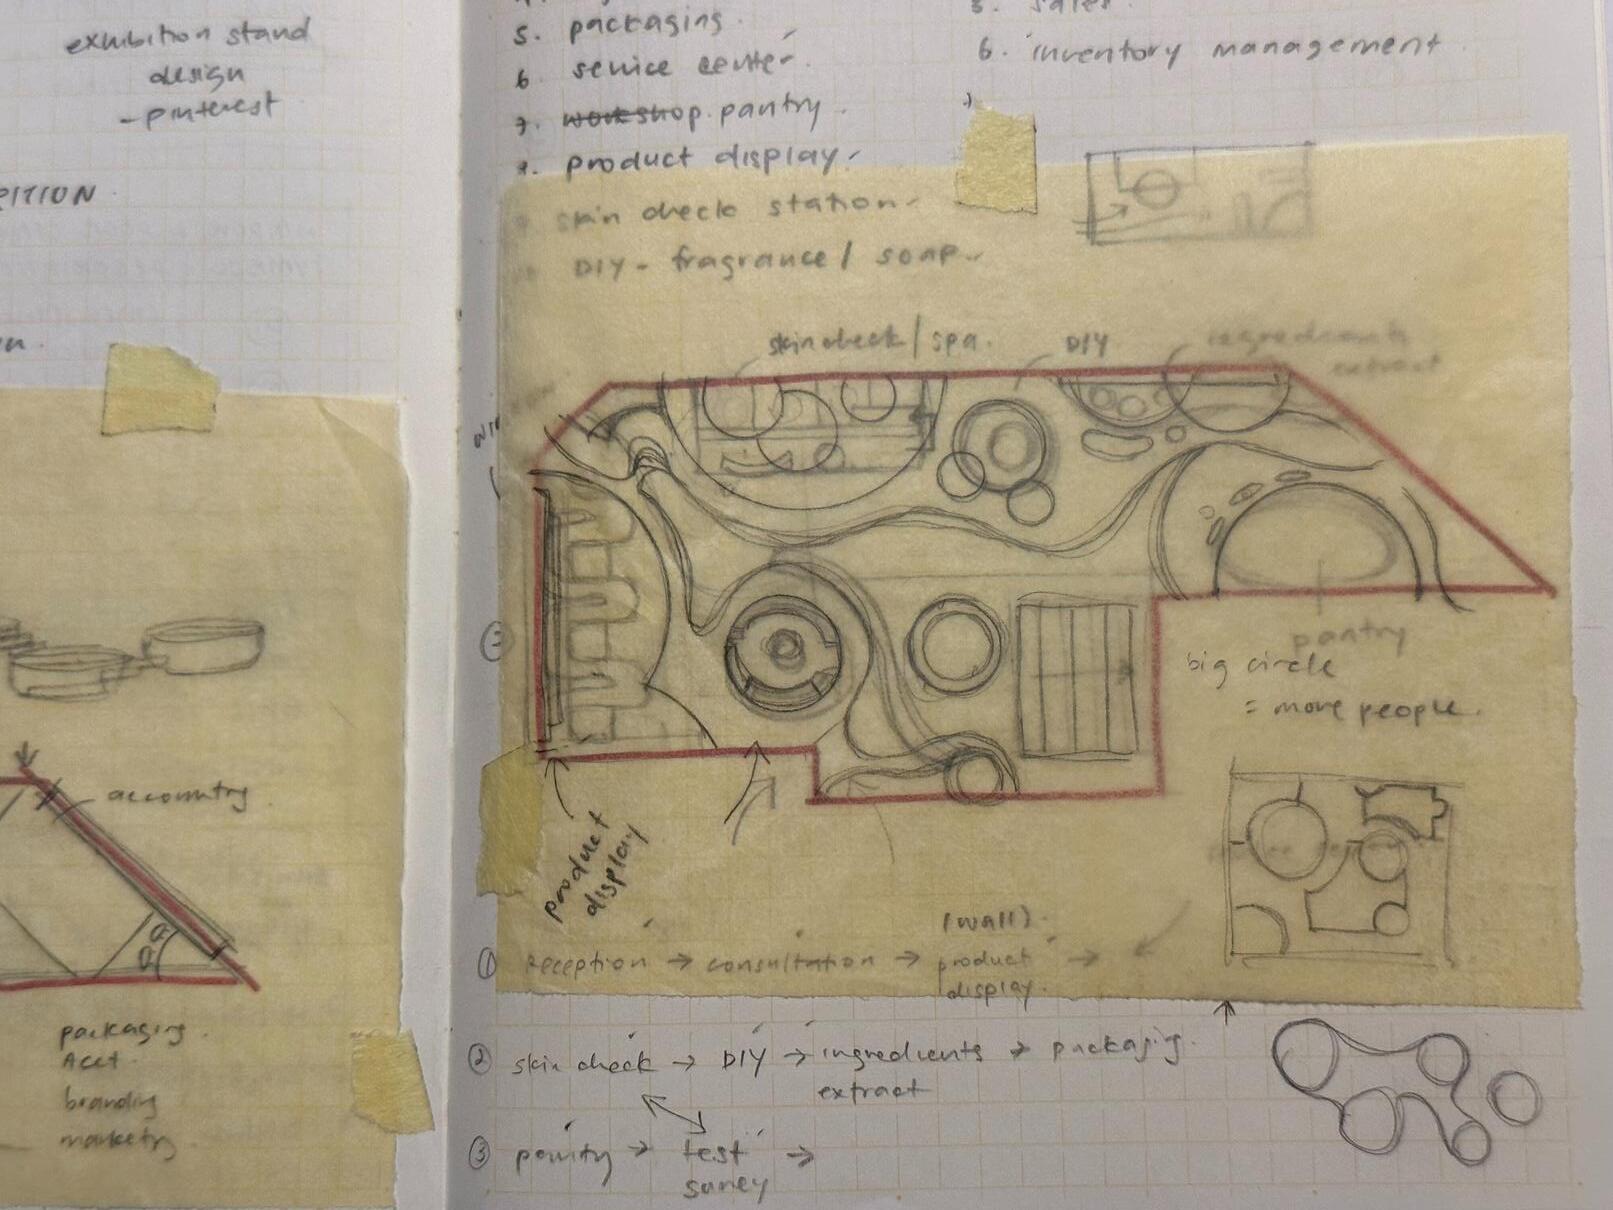 exhibition stand
design
- pinterest
5. packaging.
6 service center.
7. workshop. pantry.
product display.
skin check station
DIY - fragrance / soap.
5. sales.
6. inventory management.
skincheck / spa.
DIY
ingredients
extract
pantry
big circle
= more people.
product
display
accountry
packaging.
Acct.
branding
marketry
(wall).
① Reception → consultation → product →
display.
② skin check → DIY → ingredients → packaging.
extract
③ pantry → test →
survey